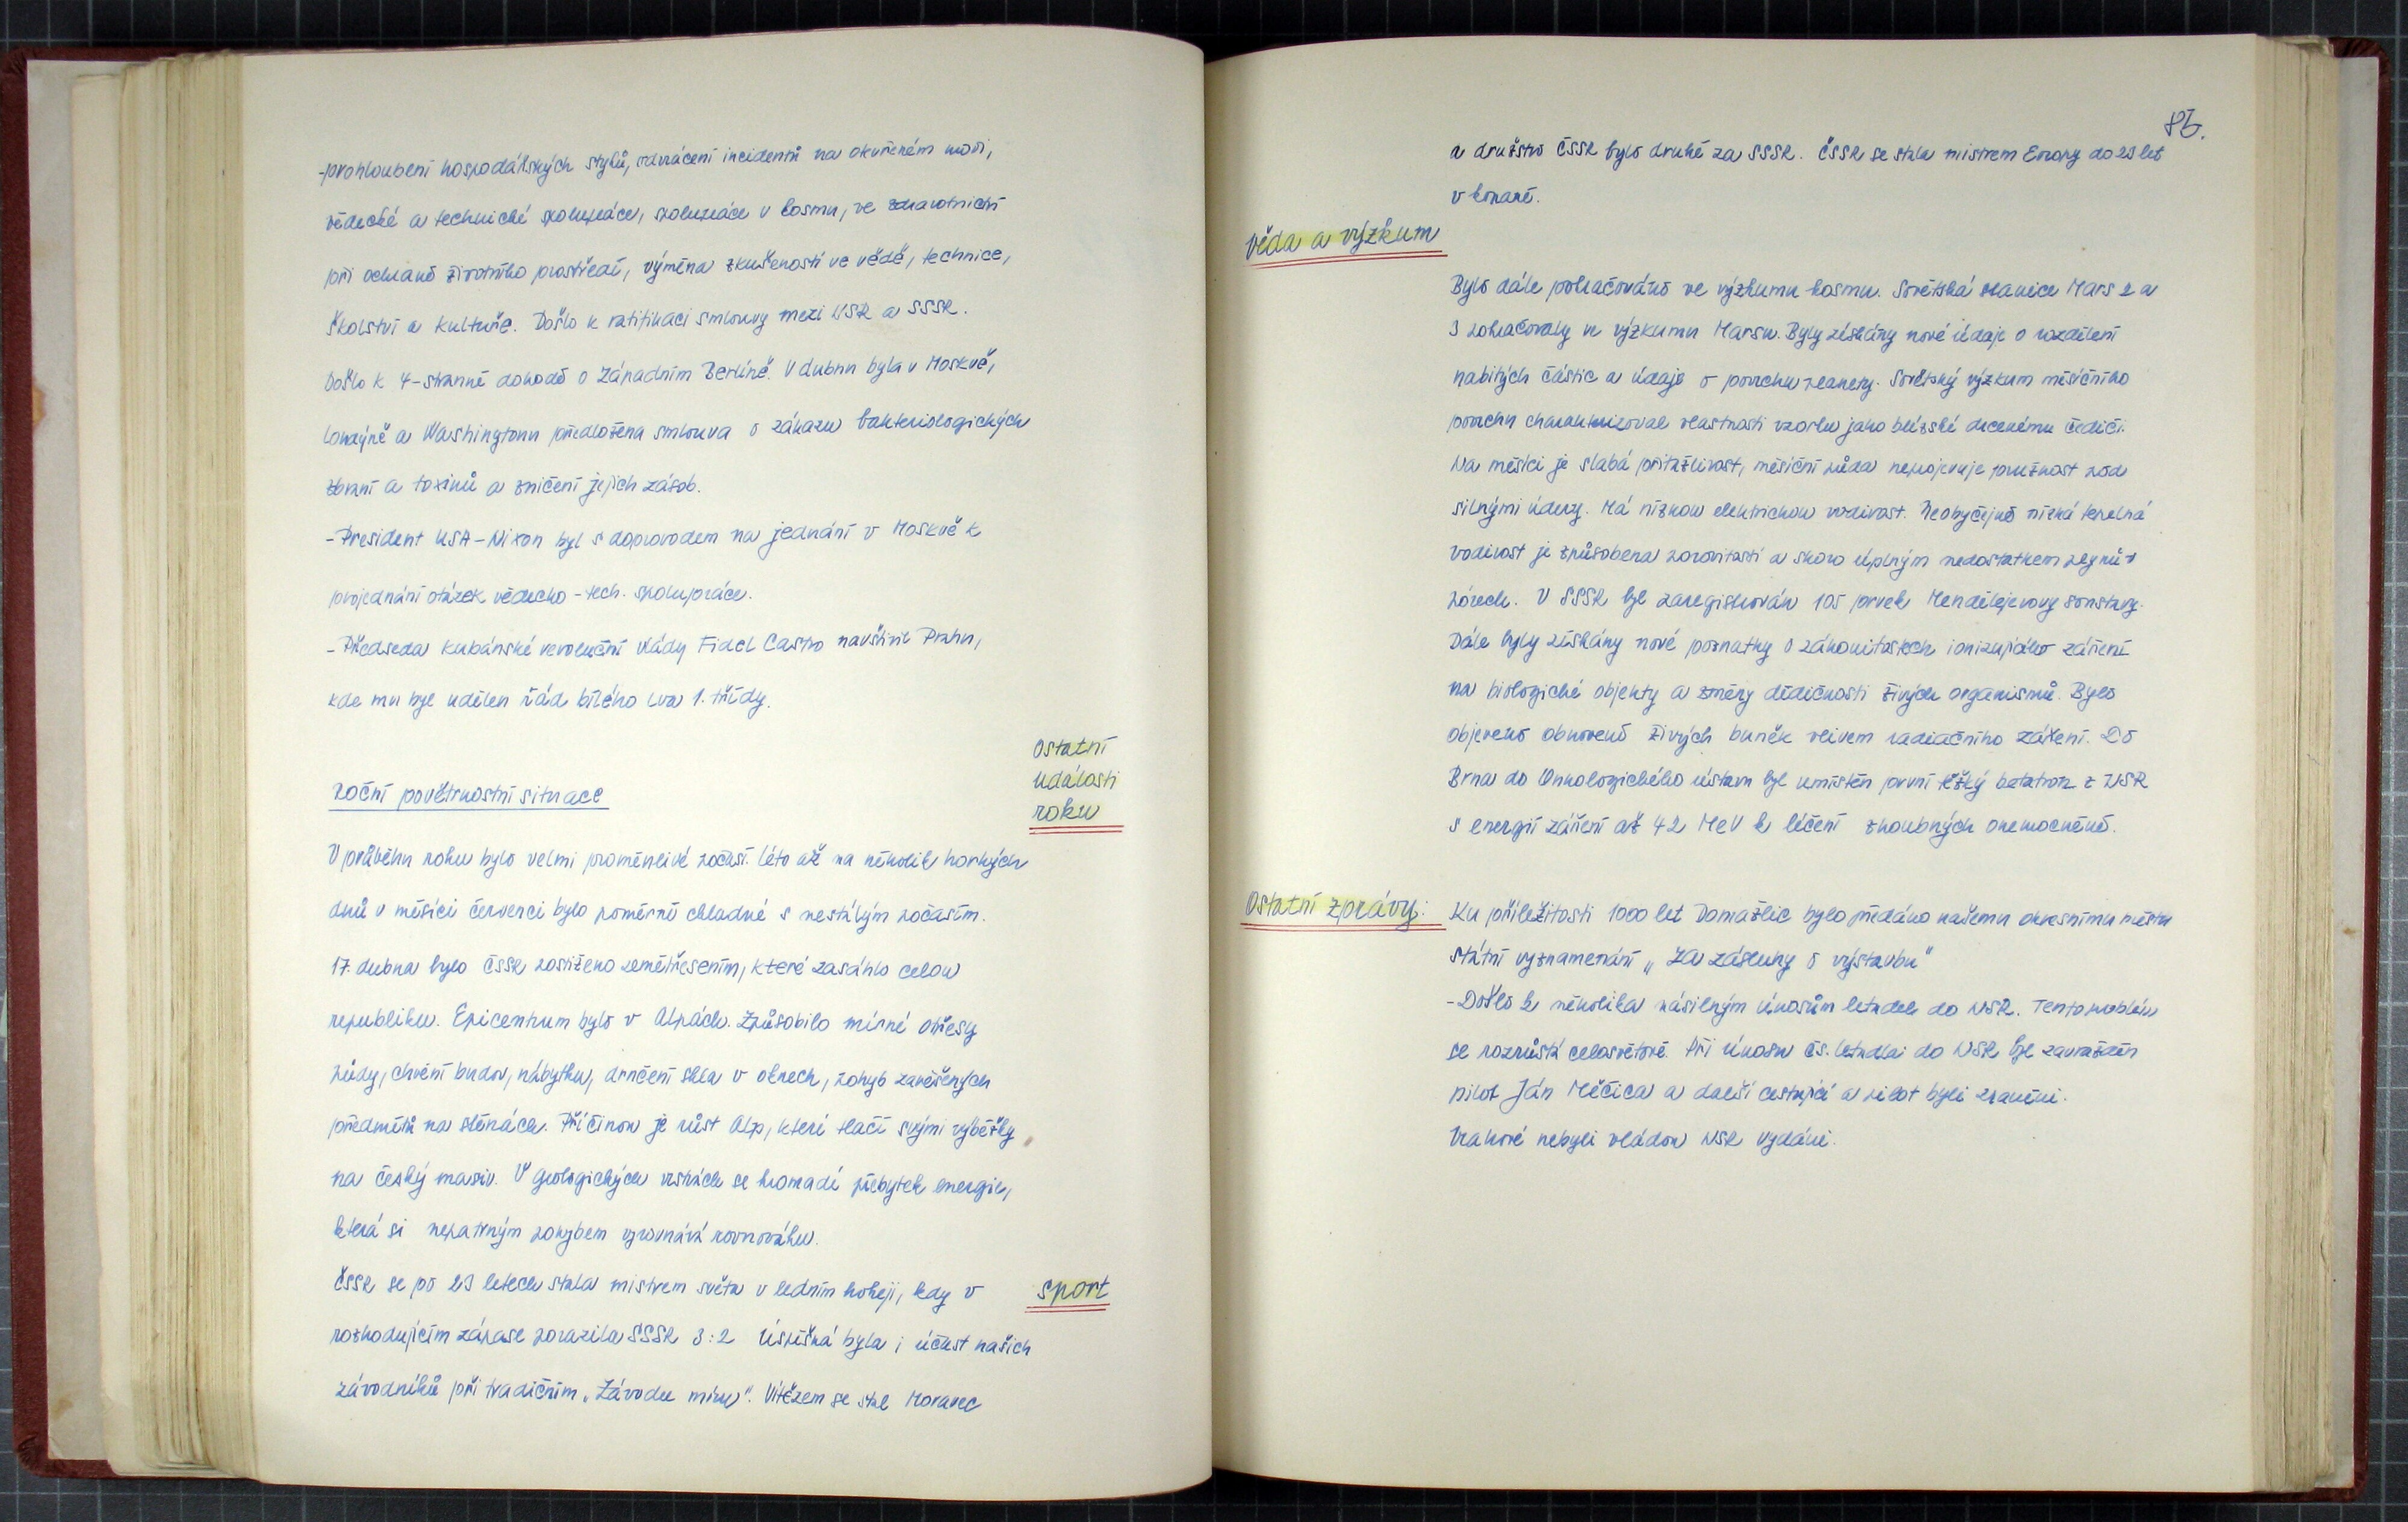 -prohloubení hospodářských styků, odvrácení incidentů na otevřeném moři,
vědecké a technické spolupráce, spolupráce v kosmu, ve zdravotnictví
při ochraně životního prostředí, výměna zkušeností ve vědě, technice,
školství a kultuře. Došlo k ratifikaci smlouvy mezi NSR a SSSR.
Došlo k 4-stranné dohodě o Západním Berlíně. V dubnu byla v Moskvě,
Londýně a Washingtonu předložena smlouva o zákazu bakteriologických
zbraní a toxinů a zničení jejich zásob.
-President USA-Nixon byl s doprovodem na jednání v Moskvě k
projednání otázek vědecko-tech. spolupráce.
-Předseda kubánské revoluční vlády Fidel Castro navštívil Prahu,
kde mu byl udělen řád bílého lva 1. třídy.
Ostatní
události
roku
Roční povětrnostní situace
V průběhu roku bylo velmi proměnlivé počasí. Léto až na několik horkých
dnů v měsíci červenci bylo poměrně chladné s nestálým počasím.
17. dubna bylo ČSSR postiženo zemětřesením, které zasáhlo celou
republiku. Epicentrum bylo v Alpách. Způsobilo mírné otřesy
půdy, chvění budov, nábytku, drnčení skla v oknech, pohyb zavěšených
předmětů na stěnách. Příčinou je růst Alp, které tlačí svými výběžky
na český masiv. V geologických vrstvách se hromadí přebytek energie,
která si nepatrným pohybem vyrovnává rovnováhu.
ČSSR se po 23 letech stala mistrem světa v ledním hokeji, kdy v
sport
rozhodujícím zápase porazila SSSR 3:2 Úspěšná byla i účast našich
závodníků při tradičním „Závodu míru". Vítězem se stal Moravec
86.
a družstvo ČSSR bylo druhé za SSSR. ČSSR se stala mistrem Evropy do 23 let
v kopané.
Věda a výzkum
Bylo dále pokračováno ve výzkumu kosmu. Sovětská stanice Mars 2 a
3 pokračovaly ve výzkumu Marsu. Byly získány nové údaje o rozdělení
nabitých částic a údaje o povrchu planety. Sovětský výzkum měsíčního
povrchu charakterizoval vlastnosti vzorku jako blízské drcenému čediči.
Na měsíci je slabá přitažlivost, měsíční půda neprojevuje pružnost pod
silnými údery. Má nízkou elektrickou vodivost. Neobyčejně nízká tepelná
vodivost je způsobena porovitostí a skoro úplným nedostatkem plynů v
pórech. V SSSR byl zaregistrován 105 prvek Mendělejevovy soustavy.
Dále byly získány nové poznatky o zákonitostech ionizujícího záření
na biologické objekty a změny dědičnosti živých organismů. Bylo
objeveno obnovení živých buněk vlivem radiačního záření. Do
Brna do Onkologického ústavu byl umístěn první těžký betatron z NSR
s energií záření až 42 MeV k léčení zhoubných onemocnění.
Ostatní zprávy:
Ku příležitosti 1000 let Domažlic bylo předáno našemu okresnímu městu
státní vyznamenání „Za zásluhy o výstavbu"
-Došlo k několika násilným únosům letadel do NSR. Tento problém
se rozrůstá celosvětově. Při únosu čs. letadla do NSR byl zavražděn
pilot Ján Mičica a další cestující a pilot byli zraněni.
Vrahové nebyli vládou NSR vydáni.